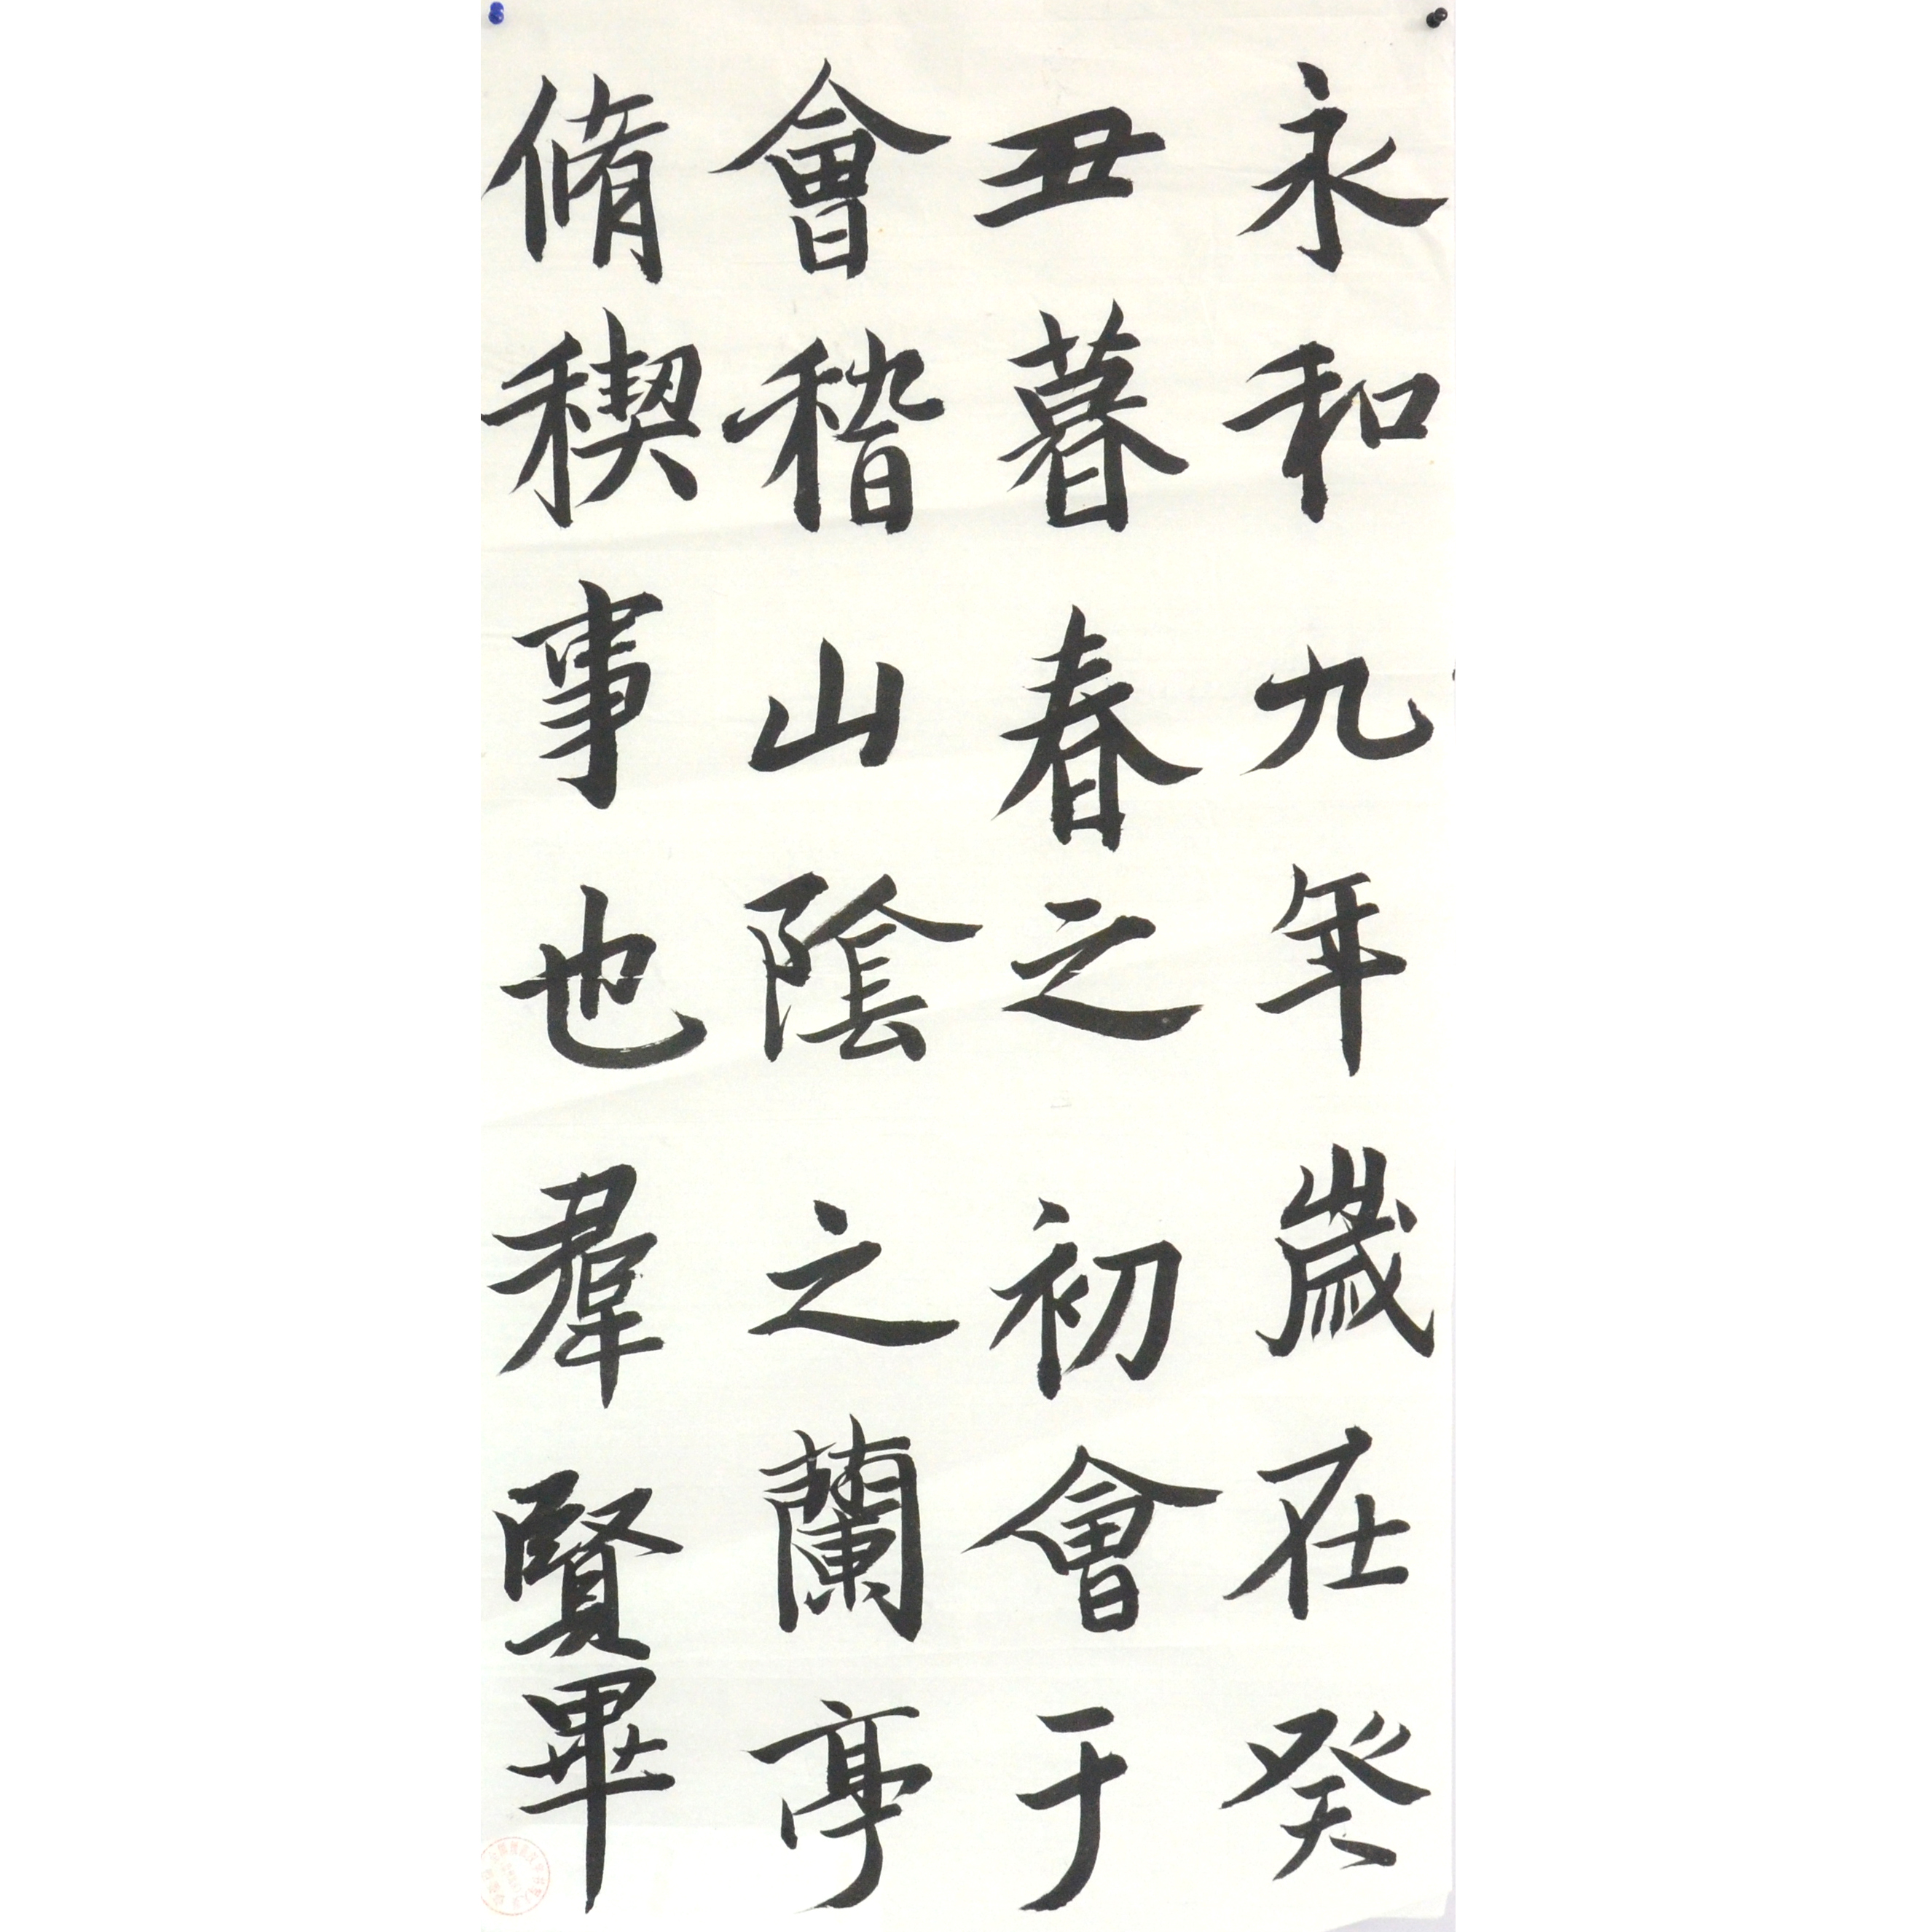 永和九年歲在癸
丑暮春之初會于
會稽山陰之蘭亭
脩稧事也羣賢畢